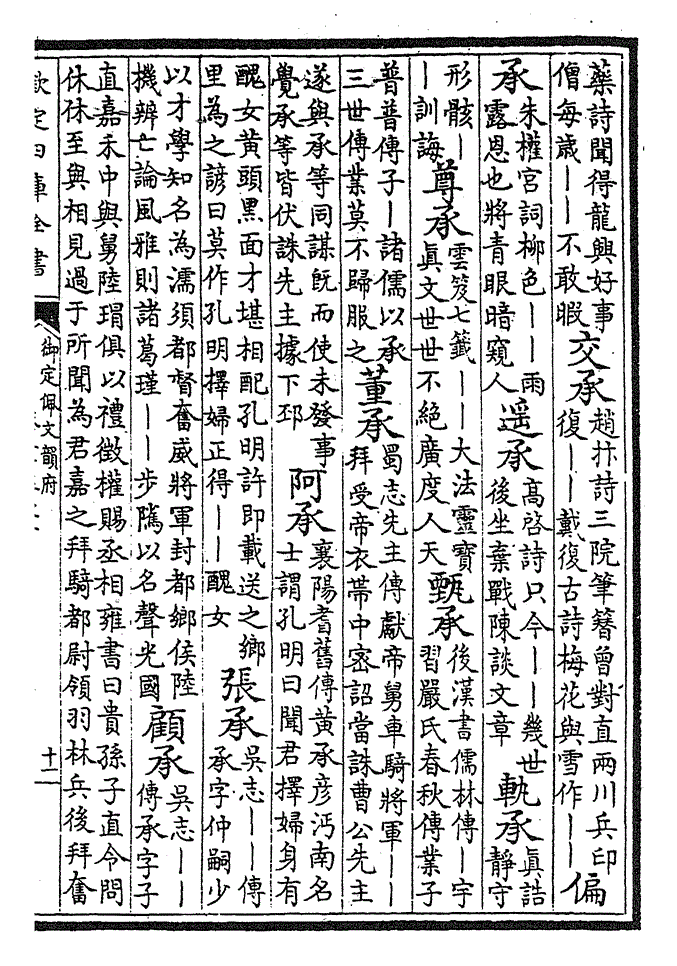 藥詩聞得龍興好事
僧每歲——不敢暇
交承
趙抃詩三院筆簪曾對直兩川兵印
復——戴復古詩梅花與雪作——
偏
承
朱權宮詞柳色——雨
露恩也將青眼暗窺人
遥承
髙啓詩只今——幾世
後坐棄戰陳談文章
軌承
眞誥
靜守
形骸—
—訓誨
尊承
雲笈七籤——大法靈寶
眞文世世不絕廣度人天
甄承
後漢書儒林傳—宇
習嚴氏春秋傳業子
普普傳子—諸儒以承
三世傳業莫不歸服之
董承
蜀志先主傳獻帝舅車騎將軍——
拜受帝衣帶中密詔當誅曹公先主
遂與承等同謀旣而使未發事
覺承等皆伏誅先主據下邳
阿承
襄陽耆舊傳黄承彦沔南名
士謂孔明曰聞君擇婦身有
醜女黄頭黒面才堪相配孔明許即載送之鄉
里為之諺曰莫作孔明擇婦正得——醜女
張承
吳志——傳
承字仲嗣少
以才學知名為濡須都督奮威將軍封都鄉侯陸
機辨亡論風雅則諸葛瑾——步隲以名聲光國
顧承
吳志——
傳承字子
直嘉禾中與舅陸瑁俱以禮徵權賜丞相雍書曰貴孫子直令問
休休至與相見過于所聞為君嘉之拜騎都尉領羽林兵後拜奮
欽定四庫全書
御定佩文韻府
十二